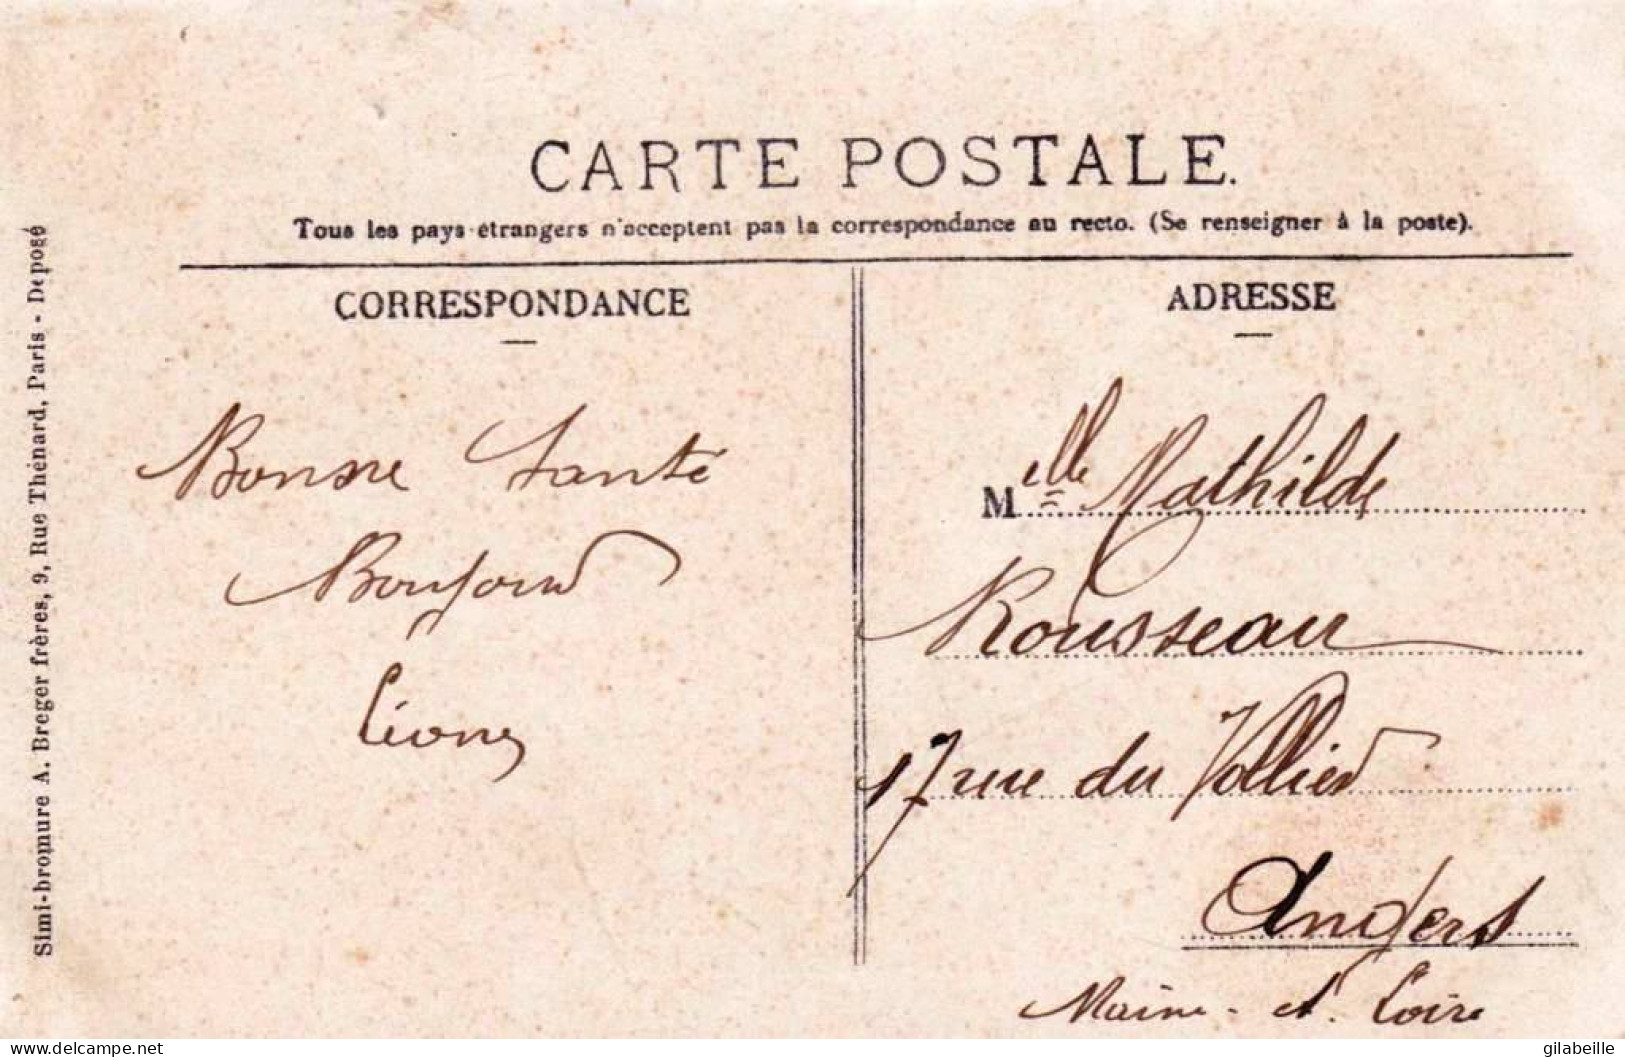 CARTE POSTALE.
Tous les pays étrangers n'acceptent pas la correspondance au recto. (Se renseigner à la poste).
CORRESPONDANCE
Bonne Santé
Bonjour
ADRESSE
Melle Mathilde
Rousseau
17 rue du
Angers
Maine-et-Loire
Simi-bromure A. Breger frères, 9, Rue Thénard, Paris - Déposé
delcampe.net
gilabeille